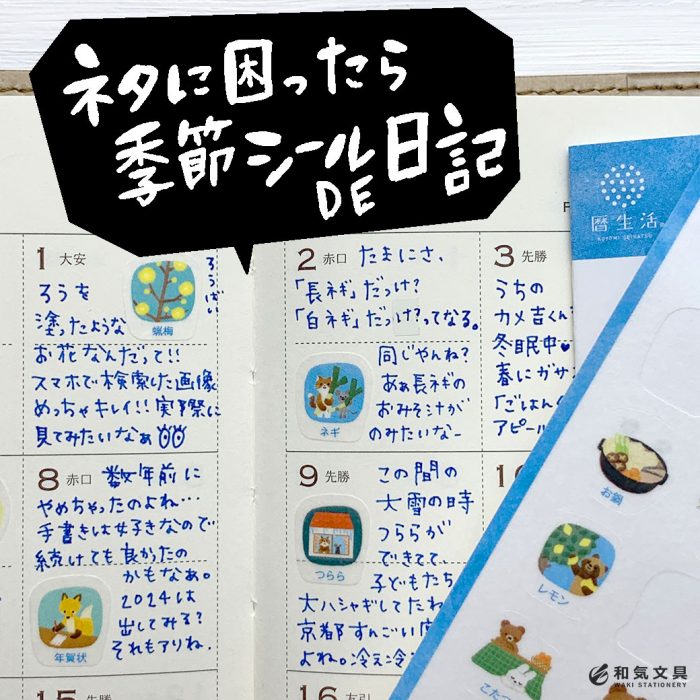 ネタに困ったら
季節シールDE日記
暦生活
KOYOMI SEIKATSU
1 大安
ろうばい
ろうを
塗ったような
蝋梅
お花なんだって!!
スマホで検索した画像
めっちゃキレイ!!実際に
見てみたいなぁ
2 赤口 たまにさ、
「長ネギ」だっけ?
「白ネギ」だっけ?ってなる。
同じやんね?
あぁ長ネギの
おみそ汁が
のみたいなー
ネギ
3 先勝
うちの
カメ吉くん
冬眠中
春にガサ
「ごはん
アピール
8 赤口 数年前に
やめちゃったのよね…
手書きは好きなので
続けても良かったの
かもなぁ。
2024は
出してみる?
それもアリね.
年賀状
9 先勝 この間の
大雪の時
つららが
できてて、
子どもたち
つらら
大ハシャギしてたわ
京都すんごい
よね。冷え冷
10
お鍋
レモン
こたつ
15 先勝
16 友引
和気文具
WAKI STATIONERY